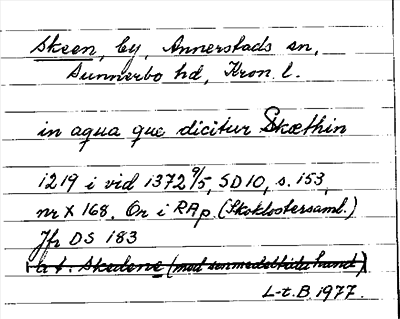 Skeen, by, Annerstads sn,
Sunnerbo hd, Kron. l.
in aqua que dicitur Skæthin
1219 i vid 1372 9/5, SD 10, s. 153,
nr X 168. Or i RAp (Skoklostersaml.)
Jfr DS 183
a t. Skedene (med senmedeltida hand)
L-t. B. 1977.